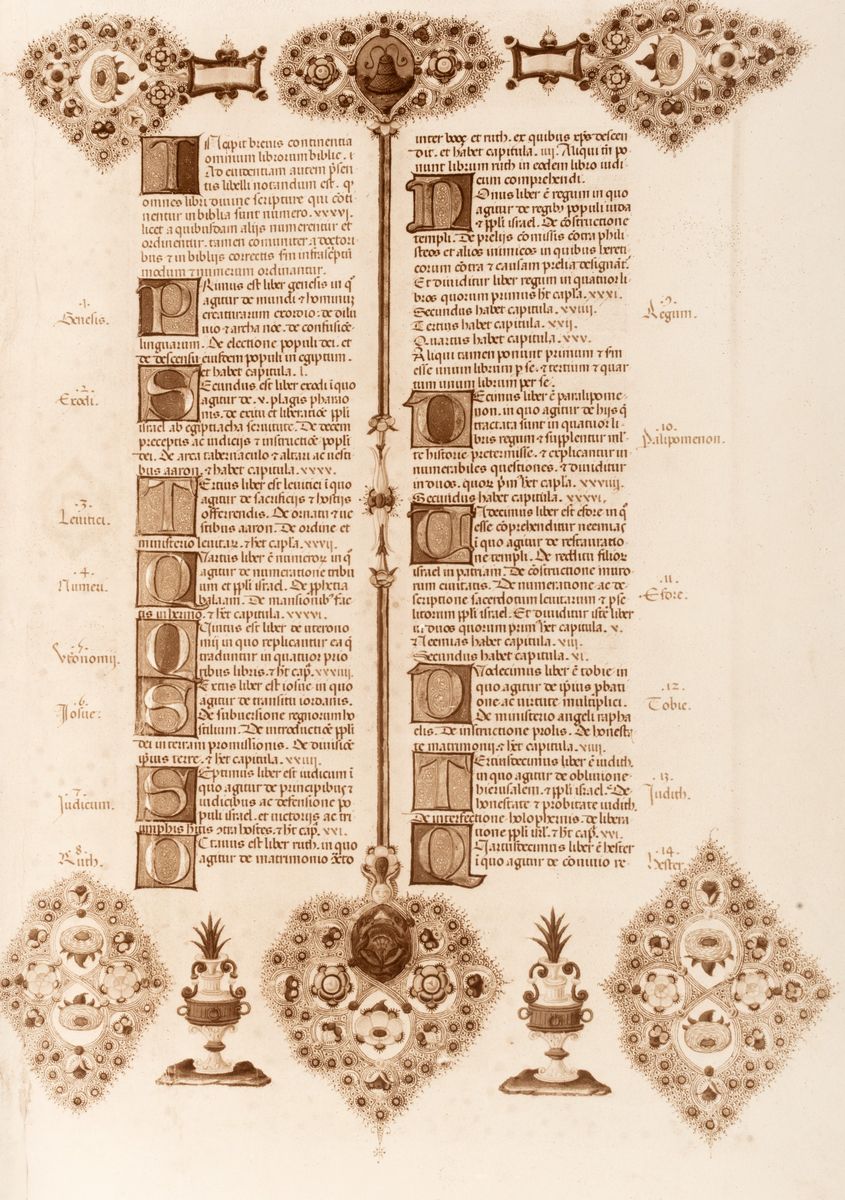 Incipit breuis continentia
omnium librorum biblie. et
Ad euidentiam autem p̄sen
tis libelli notandum est. q̧
omnes libri diuine scripture qui cōti
nentur in biblia sunt numero. xxxvi.
licet a quibusdam alijs numerentur et
ordinentur. tamen comuniter a doctori
bus et in biblijs correctis s̄m infrascp̄tū
modum et numerum ordinantur.
.1.
Genesis.
PRimus est liber genesis in q°
agitur de mundi et hominuꝫ
creaturarum exordio. de dilu
uio et archa noe. de confusiōe
linguarum. De electione populi dei. et
de descensu eiusdem populi in egiptum.
et habet capitula. l.
.2.
Exodi.
SEcundus est liber exodi ī quo
agitur de .x. plagis pharao
nis. de exitu et liberatiōe pp̄li
israel ab egiptiacha seruitute. De decem
preceptis ac iudicijs et instructiōe popl̄i
dei. De arca tabernaculo et altari ac uesti
bus aaron. et habet capitula. xxxx.
.3.
Leuitici.
TErtius liber est leuitici ī quo
agitur de sacrificijs et hostijs
offerrendis. De ornatu et ue
stibus aaron. De ordine et
ministerio leuitaꝝ. et h̄et capl̄a. xxvij.
.4.
Numeri.
QUartus liber ē numeroꝝ in q°
agitur de numeratione tribu
um et pp̄li israel. De pp̄hetia
balaam. De mansionibꝰ fac
tis in hermo. et h̄et capitula. xxxvi.
.5.
Vtronomij.
QUintus est liber deuterono
mij in quo replicantur ea q̄
traduntur in quatuor prio
ribus libris. et h̄et cap̄. xxxiiij.
.6.
Josue.
SExtus liber est iosue in quo
agitur de transitu iordanis.
De subuersione regnorum ho
stilium. De introductiōe pp̄li
dei in terram promissionis. De diuisiōe
ip̄ius terre. et h̄et capitula. xxiiij.
.7.
Judicum.
SEptimus liber est iudicum ī
quo agitur de principibus et
iudicibus ac defensione po
puli israel. et uictorijs ac tri
umphis hītis 9tra hostes. et h̄t cap̄. xxi.
.8.
Ruth.
OCtauus est liber ruth. in quo
agitur de matrimonio
inter booz et ruth. ex quibus xp̄s descen
dit. et habet capitula. iiij. Aliqui tn̄ po
nunt librum ruth in eodem libro iudi
cum comprehendi.
.9.
Regum.
NOnus liber ē regum in quo
agitur de regibꝫ populi iuda
et pp̄li israel. De cōstructione
templi. De prelijs comissis cōtra phili
steos et alios inimicos in quibus hereti
corum cōtra et causam prelia designāt̄.
Et diuiditur liber regum in quatuor li
bros quorum primus h̄t capl̄a. xxxi.
Secundus habet capitula. xxiiij.
Tertius habet capitula. xxij.
Quartus habet capitula. xxv.
Aliqui tamen ponunt primum et s̄m
esse unum librum p̄ se. et tertium et quar
tum unum librum per se.
.10.
Palipomenon.
DEcimus liber ē paralipome
non. in quo agitur de hijs q̄
tractata sunt in quatuor li
bris regum et supplentur ml̄
te historie pretermisse. et explicantur in
numerabiles questiones. et diuiditur
in duos. quoꝝ p̄mꝰ h̄et capl̄a. xxviiij.
Secundus habet capitula. xxxvi.
.11.
Esdre.
UNdecimus liber est esdre in q°
esse cōprehenditur neemias
ī quo agitur de restauratio
ne templi. De redditu filioꝝ
israel in patriam. De cōstructione muro
rum ciuitatis. De numeratione ac de
scriptione sacerdotum leuitarum et p̄se
litorum pp̄li israel. Et diuiditur iste liber
ī duos quorum primꝰ h̄et capitula. x.
et Neemias habet capitula. xiij.
Secundus habet capitula. xi.
.12.
Tobie.
DUodecimus liber ē tobie in
quo agitur de ip̄ius p̄bati
one ac uirtute multiplici.
De ministerio angeli rapha
elis. De instructione prolis. De honesta
te matrimonij. et h̄et capitula. xiiij.
.13.
Judith.
TErtiusdecimus liber ē iudith.
in quo agitur de obliuione
hierusalem. et pp̄li israel. De
honestate et probitate iudith.
De interfectione holophernis. de libera
tione pp̄li isrl̄. et h̄t cap̄. xvi.
.14.
hester.
QUartusdecimus liber ē hester
ī quo agitur de conuiuio re